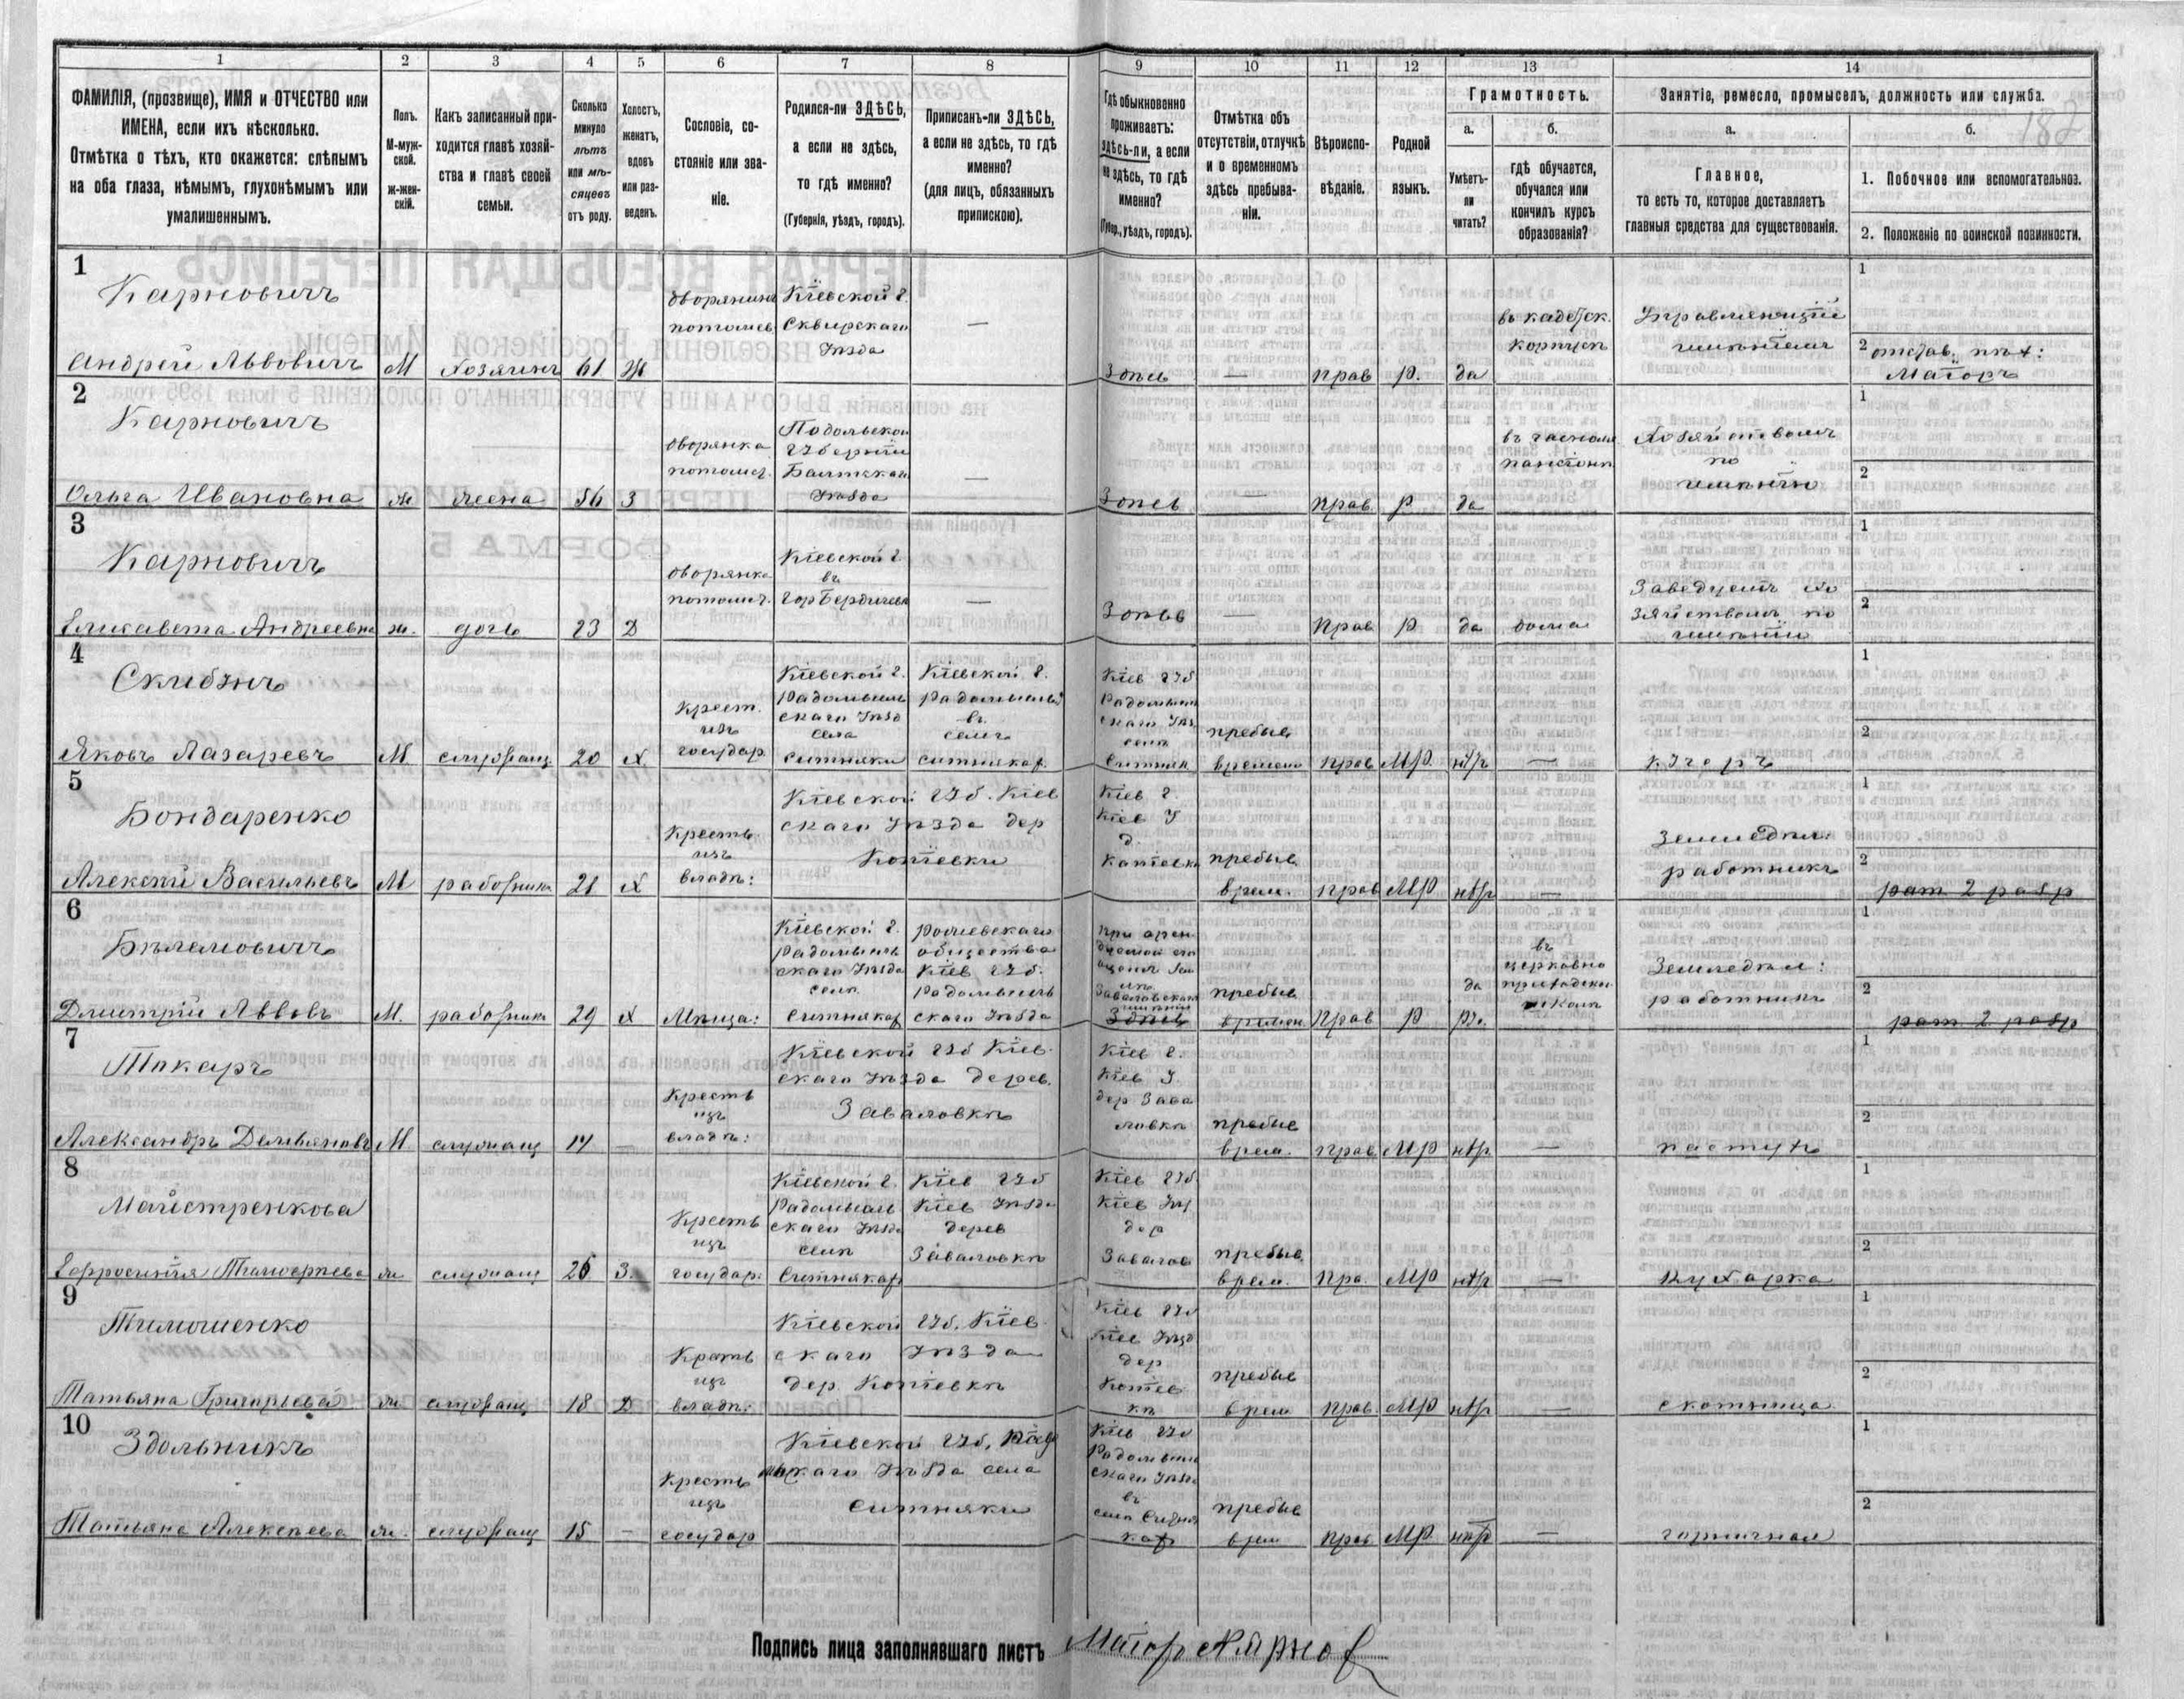 1 2 3 4 5 6 7 8 9 10 11 12 13 14
ФАМИЛІЯ, (прозвище), ИМЯ и ОТЧЕСТВО или
ИМЕНА, если ихъ нѣсколько.
Отмѣтка о тѣхъ, кто окажется: слѣпымъ
на оба глаза, нѣмымъ, глухонѣмымъ или
умалишеннымъ.
Полъ.
М-муж-
ской.
ж-жен-
скій.
Какъ записанный при-
ходится главѣ хозяй-
ства и главѣ своей
семьи.
Сколько
минуло
лѣтъ
или мѣ-
сяцевъ
отъ роду.
Холостъ,
женатъ,
вдовъ
или раз-
веденъ.
Сословіе, со-
стояніе или зва-
ніе.
Родился-ли ЗДѢСЬ,
а если не здѣсь,
то гдѣ именно?
(Губернія, уѣздъ, городъ).
Приписанъ-ли ЗДѢСЬ,
а если не здѣсь, то гдѣ
именно?
(для лицъ, обязанныхъ
припискою).
Гдѣ обыкновенно
проживаетъ:
здѣсь-ли, а если
не здѣсь, то гдѣ
именно?
(Губер., уѣздъ, городъ).
Отмѣтка объ
отсутствіи, отлучкѣ
и о временномъ
здѣсь пребыва-
ніи.
Вѣроиспо-
вѣданіе.
Родной
языкъ.
Грамотность.
а.
Умѣетъ-
ли
читать?
б.
гдѣ обучается,
обучался или
кончилъ курсъ
образованія?
Занятіе, ремесло, промыселъ, должность или служба.
а.
Главное,
то есть то, которое доставляетъ
главныя средства для существованія.
б.
1. Побочное или вспомогательное.
2. Положеніе по воинской повинности.
1
Карновичъ
Андрей Львовичъ М Хозяинъ 61 Ж
дворянинъ
потомст.
Кіевской г.
Сквирскаго
Уѣзда
—
Здѣсь — прав р. да
въ кадетск.
корпусѣ
Управляющій
имѣніемъ
1
2 отстав. пѣх:
Маіоръ
2
Карновичъ
Ольга Ивановна ж жена 56 З
дворянка
потомст.
Подольской
Губерніи
Балтскаго
Уѣзда
—
Здѣсь — прав. р. да
въ частномъ
пансіонѣ
Хозяйствомъ
по
имѣнію
1
2
3
Карновичъ
Елисавета Андреевна ж. дочь 23 Д
дворянка
потомст.
Кіевской г.
въ
гор Бердичевѣ
—
Здѣсь — прав р да дома
Заведуетъ хо
зяйствомъ по
имѣнію
1
2
4
Яковъ Лазаревъ М. служащ 20 Х.
Крест.
изъ
государ.
Кіевской г.
Радомысль
скаго Уѣзд
села
Ситняки
Кіевской г.
Радомысль
въ
селѣ
Ситнякахъ
Кіев Губ
Радомысль
скаго Уѣз
селѣ
Ситняк
пребыв.
времено прав МР. нѣтъ —
кучеръ
1
2
5
Бондаренко
Алексѣй Васильевъ М работника 21 Х
Кресть.
изъ
владѣ:
Кіевской Губ. Кіев
скаго Уѣзда дер
Копіевки
Кіев г.
Кіев У
д.
Копіевк
пребыв
врем. прав МР нѣтъ —
Земледѣл.
работникъ
1
2
рат 2 разр
6
Дмитрій Львовъ М. работника 29 Х Мѣща:
Кіевской г.
Радомысль
скаго Уѣзда
селѣ
Ситнякахъ
общества
Кіев Губ.
Радомысль
скаго Уѣзда
Здѣсь
пребыв
времен прав р да
въ
церковно
приходской
школѣ
Земледѣл:
работникъ
1
2
рат 2 разр
7
Токарь
Александръ Демьяновъ М. служащ 14 —
Кресть
изъ
владѣ:
Кіевской Губ Кіев.
скаго Уѣзда дерев.
Заваловкѣ
Кіев г.
Кіев У.
дер Зава
ловкѣ
пребыв
врем. прав. МР нѣтъ —
пастухъ
1
2
8
Майстренкова
Евфросинія Тимофеева ж служащ 26 З.
Кресть
изъ
государ.
Кіевской г.
Радомысль
скаго Уѣзда
селѣ
Ситнякахъ
Кіев Губ
Кіев Уѣзда
дерев
Заваловкѣ
Кіев Губ
Кіев Уѣз
дер
Завалов
пребыв
врем. пра. МР нѣтъ —
Кухарка
1
2
9
Тимошенко
Татьяна Григорьева ж служащ 18 Д
Кресть
изъ
владѣ:
Кіевской Губ. Кіев
скаго Уѣзда
дер. Копіевкѣ
Кіев Губ
Кіев Уѣзд
дер
Копіев
кѣ
пребыв
врем прав. МР нѣтъ —
скотница
1
2
10
Здольникъ
Татьяна Алексѣева ж. служащ 15 —
Кресть
изъ
государ
Кіевской Губ. Радо
мскаго Уѣзда села
Ситняки
Кіев Губ
Радомысль
скаго Уѣзд
въ
селѣ Ситня
кахъ
пребыв
врем прав МР. нѣтъ —
горничная
1
2
Подпись лица заполнявшаго листъ Маіоръ Карнов
182